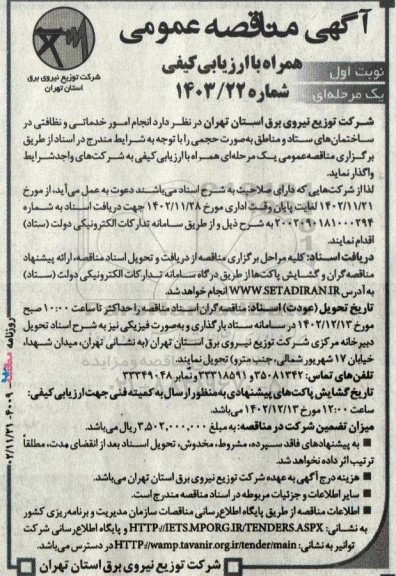 آگهی مناقصه عمومی
همراه با ارزیابی کیفی
شماره ۱۴۰۳/۲۲
نوبت اول
یک مرحله‌ای
شرکت توزیع نیروی برق
استان تهران
شرکت توزیع نیروی برق استان تهران در نظر دارد انجام امور خدماتی و نظافتی در
ساختمان‌های ستاد و مناطق به‌صورت حجمی را با توجه به شرایط مندرج در اسناد از طریق
برگزاری مناقصه عمومی یک مرحله‌ای همراه با ارزیابی کیفی به شرکت‌های واجد شرایط
واگذار نماید.
لذا از شرکت‌هایی که دارای صلاحیت به شرح اسناد می‌باشند دعوت به عمل می‌آید، از مورخ
۱۴۰۲/۱۱/۲۱ لغایت پایان وقت اداری مورخ ۱۴۰۲/۱۱/۲۸ جهت دریافت اسناد به شماره
۲۰۰۲۰۹۰۱۸۱۰۰۰۲۹۴ به شرح ذیل و از طریق سامانه تدارکات الکترونیکی دولت (ستاد)
اقدام نمایند.
دریافت اسناد: کلیه مراحل برگزاری مناقصه از دریافت و تحویل اسناد مناقصه، ارائه پیشنهاد
مناقصه گران و گشایش پاکت‌ها از طریق درگاه سامانه تدارکات الکترونیکی دولت (ستاد)
به آدرس WWW.SETADIRAN.IR انجام خواهد شد.
تاریخ تحویل (عودت) اسناد: مناقصه گران اسناد مناقصه را حداکثر تا ساعت ۱۰:۰۰ صبح
مورخ ۱۴۰۲/۱۲/۱۳ در سامانه ستاد بارگذاری و به‌صورت فیزیکی نیز به شرح اسناد تحویل
دبیرخانه مرکزی شرکت توزیع نیروی برق استان تهران (به نشانی: تهران، میدان شهدا،
خیابان ۱۷ شهریور شمالی، جنب مترو) تحویل نمایند.
تلفن‌های تماس: ۳۵۰۸۱۳۴۲ و ۳۳۳۱۸۵۹۱ و نمابر ۳۳۳۴۹۰۴۸
تاریخ گشایش پاکت‌های پیشنهادی به منظور ارسال به کمیته فنی جهت ارزیابی کیفی:
ساعت ۱۲:۰۰ مورخ ۱۴۰۲/۱۲/۱۳ می‌باشد.
میزان تضمین شرکت در مناقصه: به مبلغ ۳,۵۰۲,۰۰۰,۰۰۰ ریال می‌باشد.
■ به پیشنهادهای فاقد سپرده، مشروط، مخدوش، تحویل اسناد بعد از انقضای مدت، مطلقاً
ترتیب اثر داده نخواهد شد.
■ هزینه درج آگهی به عهده شرکت توزیع نیروی برق استان تهران می‌باشد.
■ سایر اطلاعات و جزئیات مربوطه در اسناد مناقصه مندرج است.
■ اطلاعات مناقصه از طریق پایگاه اطلاع‌رسانی مناقصات سازمان مدیریت و برنامه‌ریزی کشور
به نشانی: HTTP://IETS.MPORG.IR/TENDERS.ASPX و پایگاه اطلاع‌رسانی شرکت
توانیر به نشانی: HTTP://wamp.tavanir.org.ir/tender/main در دسترس می‌باشد.
شرکت توزیع نیروی برق استان تهران
روزنامه
۴۰۰۹ - ۰۲/۱۱/۲۱